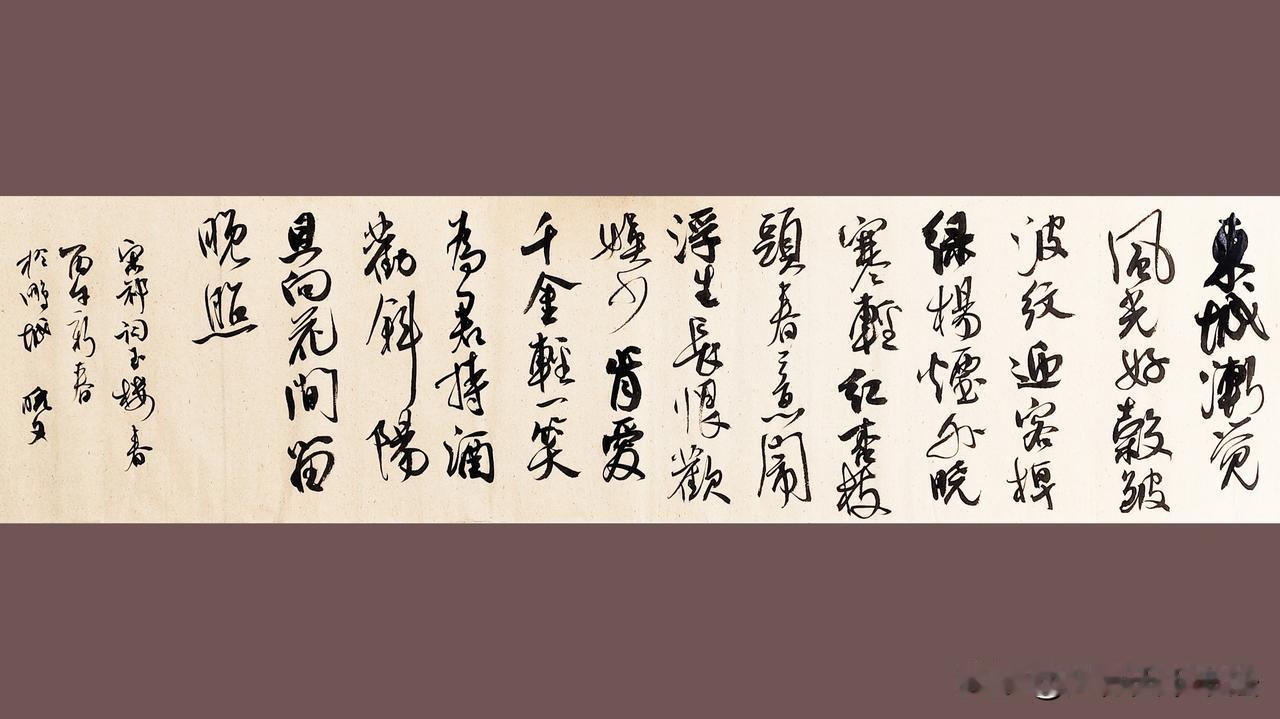 東城漸覚
風光好縠皺
波紋迎客棹
緑楊煙外曉
寒輕紅杏枝
頭春意鬧
浮生長恨歡
娱少肯愛
千金輕一笑
為君持酒
勸斜陽
且向花間留
晚照
宋祁词玉楼春
丙午新春
於鵬城 曉文